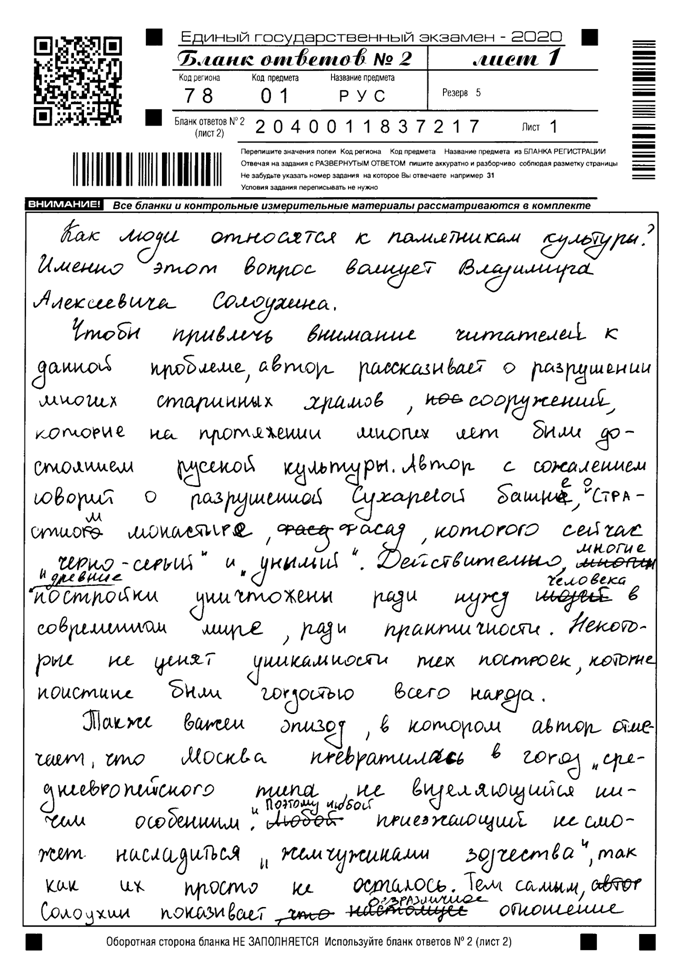 Единый государственный экзамен - 2020
Бланк ответов № 2 лист 1
Код региона Код предмета Название предмета
78 01 РУС Резерв 5
Бланк ответов № 2 (лист 2) 2040011837217 Лист 1
Перепишите значения полей Код региона Код предмета Название предмета из БЛАНКА РЕГИСТРАЦИИ
Отвечая на задания с РАЗВЕРНУТЫМ ОТВЕТОМ пишите аккуратно и разборчиво соблюдая разметку страницы
Не забудьте указать номер задания на которое Вы отвечаете например 31
Условия задания переписывать не нужно
ВНИМАНИЕ! Все бланки и контрольные измерительные материалы рассматриваются в комплекте
Как люди относятся к памятникам культуры?
Именно этот вопрос волнует Владимира
Алексеевича Солоухина.
Чтобы привлечь внимание читателей к
данной проблеме, автор рассказывает о разрушении
многих старинных храмов, сооружений,
которые на протяжении многих лет были до-
стоянием русской культуры. Автор с сожалением
говорит о разрушенной Сухаревой башне, о "Стра-
стном монастыре, фасад, которого сейчас
"черно-серый" и "унылый". Действительно, многие
"древние
постройки уничтожены ради нужд человека в
современном мире, ради практичности. Некото-
рые не ценят уникальности тех построек, которые
поистине были гордостью всего народа.
Также важен эпизод, в котором автор отме-
чает, что Москва превратилась в город „сре-
днеевропейского типа, не выделяющийся ни-
чем особенным." Поэтому любой приезжающий не смо-
жет насладиться „жемчужинами зодчества", так
как их просто не осталось. Тем самым,
Солоухин показывает безразличное отношение
Оборотная сторона бланка НЕ ЗАПОЛНЯЕТСЯ Используйте бланк ответов № 2 (лист 2)